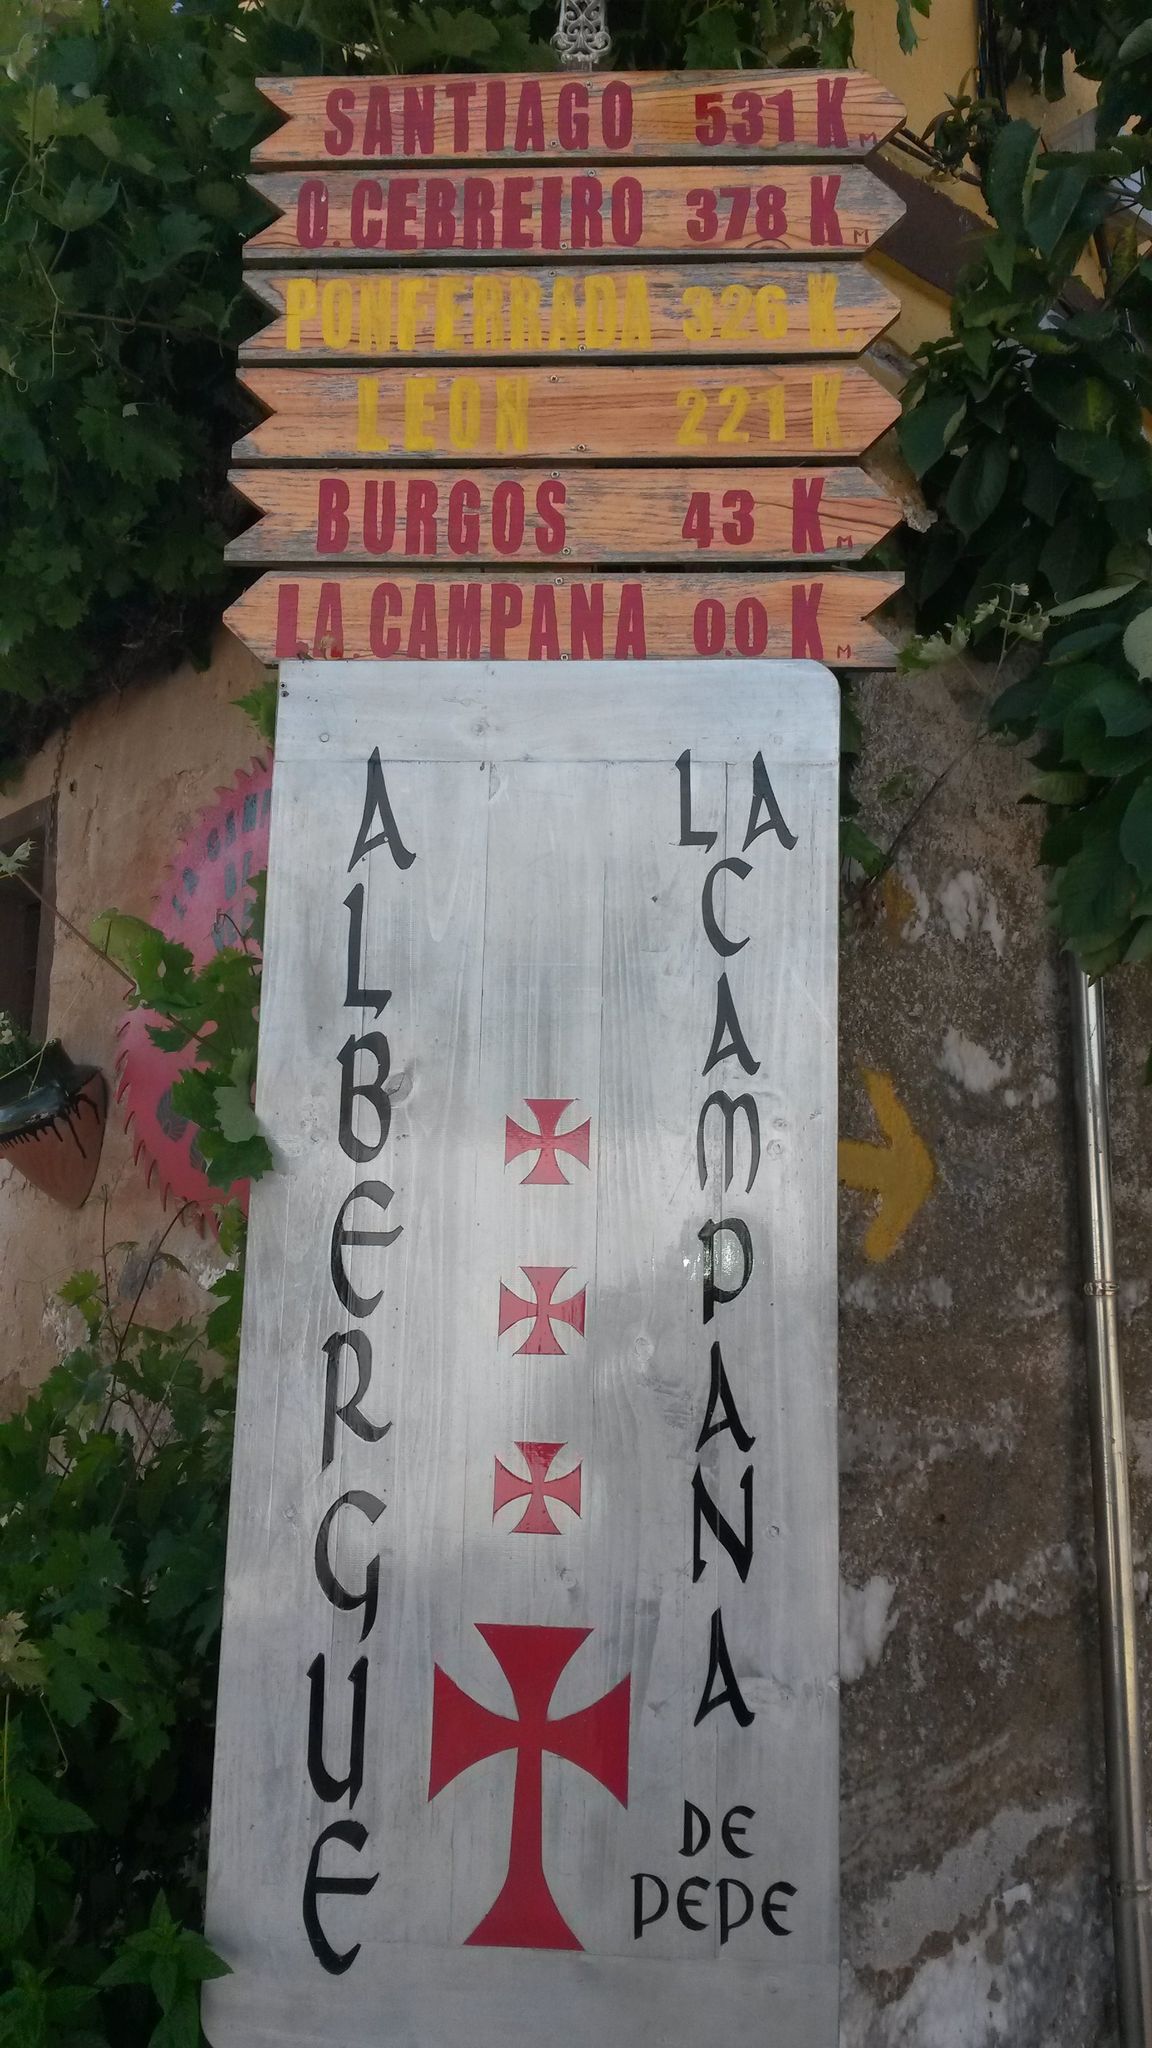 SANTIAGO 531 KM
O.CEBREIRO 378 KM
PONFERRADA 326 KM
LEON 221 K
BURGOS 43 KM
LA.CAMPANA 0.0 KM
ALBERGUE
LA CAMPANA
DE
PEPE